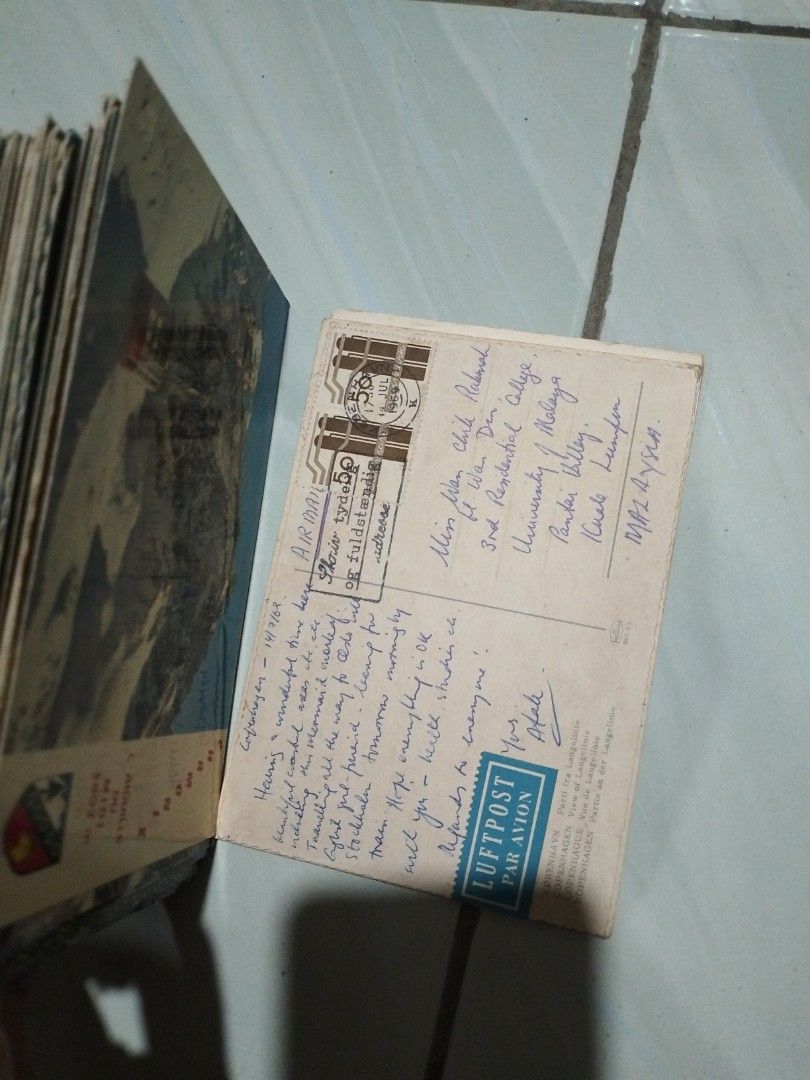 Copenhagen - 14/7/69.
Having a wonderful time here
beautiful coastal areas etc. etc.
including this mermaid overleaf.
Travelling all the way to Oslo with
English girl-friend - leaving for
Stockholm tomorrow morning by
train. Hope everything is OK
with you - health studies etc.
Regards to everyone!
Yrs.
AIR MAIL
50
50
14 JUL
1969
K
Skriv tydelig
og fuldstændig
adresse
Miss Wan Chik Rahmah
bt Wan Din,
3rd Residential College,
University of Malaya
Pantai Valley,
Kuala Lumpur
MALAYSIA.
LUFTPOST
PAR AVION
KØBENHAVN Parti fra Langelinie
COPENHAGEN View of Langelinie
COPENHAGUE Vue de Langelinie
KOPENHAGEN Partie an der Langelinie